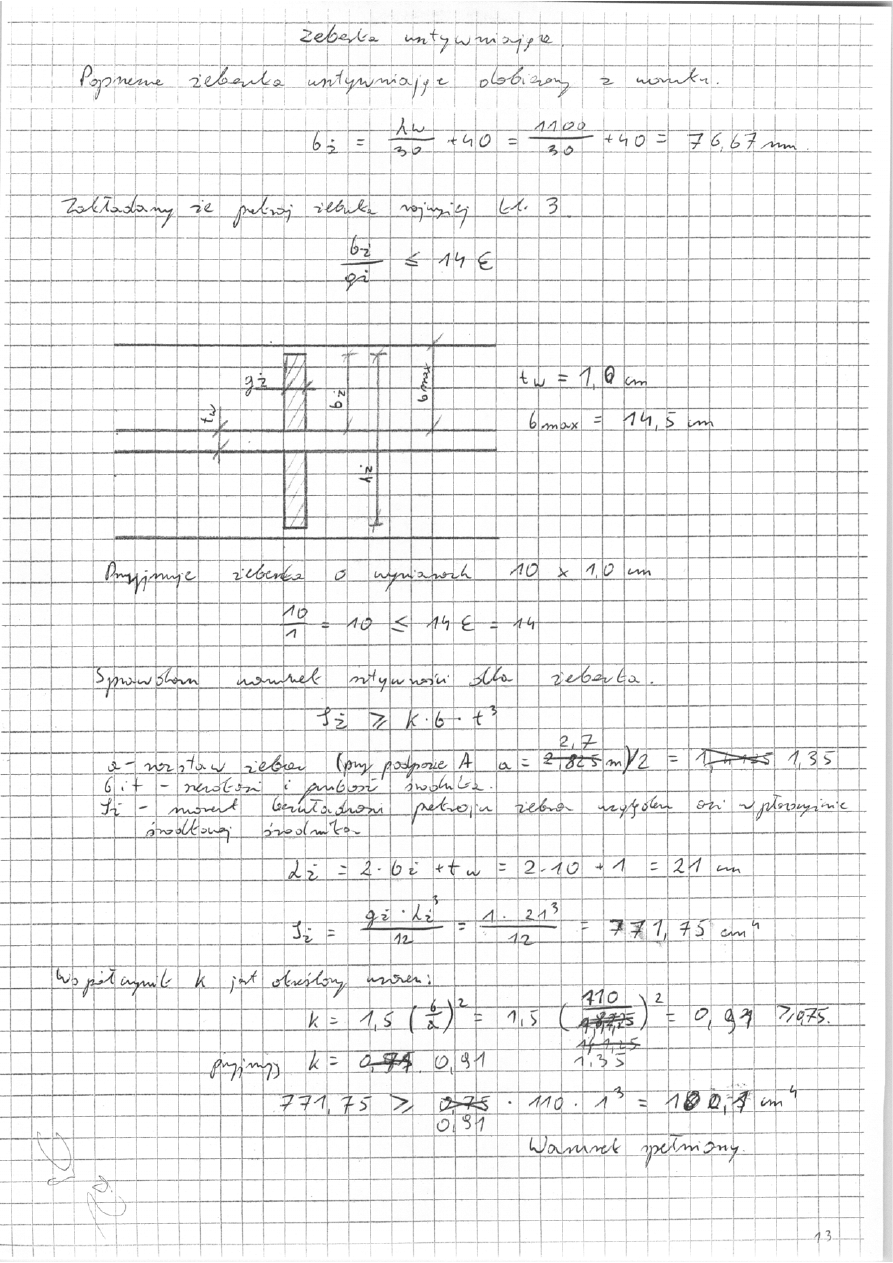 Żeberka usztywniające.
Poprzeczne żeberka usztywniające dobieramy z warunku.
bż = hw/30 + 40 = 1100/30 + 40 = 76,67 mm.
Zakładamy że przekrój żeberka najwyżej kl. 3
bż/gż ≤ 14 ε
gż
tw
bż
hż
bmax
tw = 1,0 cm
bmax = 14,5 cm
Przyjmuje żeberka o wymiarach 10 x 1,0 cm
10/1 = 10 ≤ 14 ε = 14
Sprawdzam warunek sztywności dla żeberka.
Iż ≥ k · b · t³
a - rozstaw żeber (przy podporze A a = 2,7 m)/2 = 1,35
b i t - szerokość i grubość środnika.
Iż - moment bezwładności przekroju żebra względem osi w płaszczyźnie
środkowej środnika
hż = 2 · bż + tw = 2 · 10 + 1 = 21 cm
Iż = gż · hż³/12 = 1 · 21³/12 = 771,75 cm⁴
Współczynnik k jest określony wzorem:
k = 1,5 (b/a)² = 1,5 (110/1,35)² = 0,91 ≥ 0,75.
przyjmuję k = 0,91
771,75 ≥ 0,91 · 110 · 1³ = 100,1 cm⁴
Warunek spełniony.
13